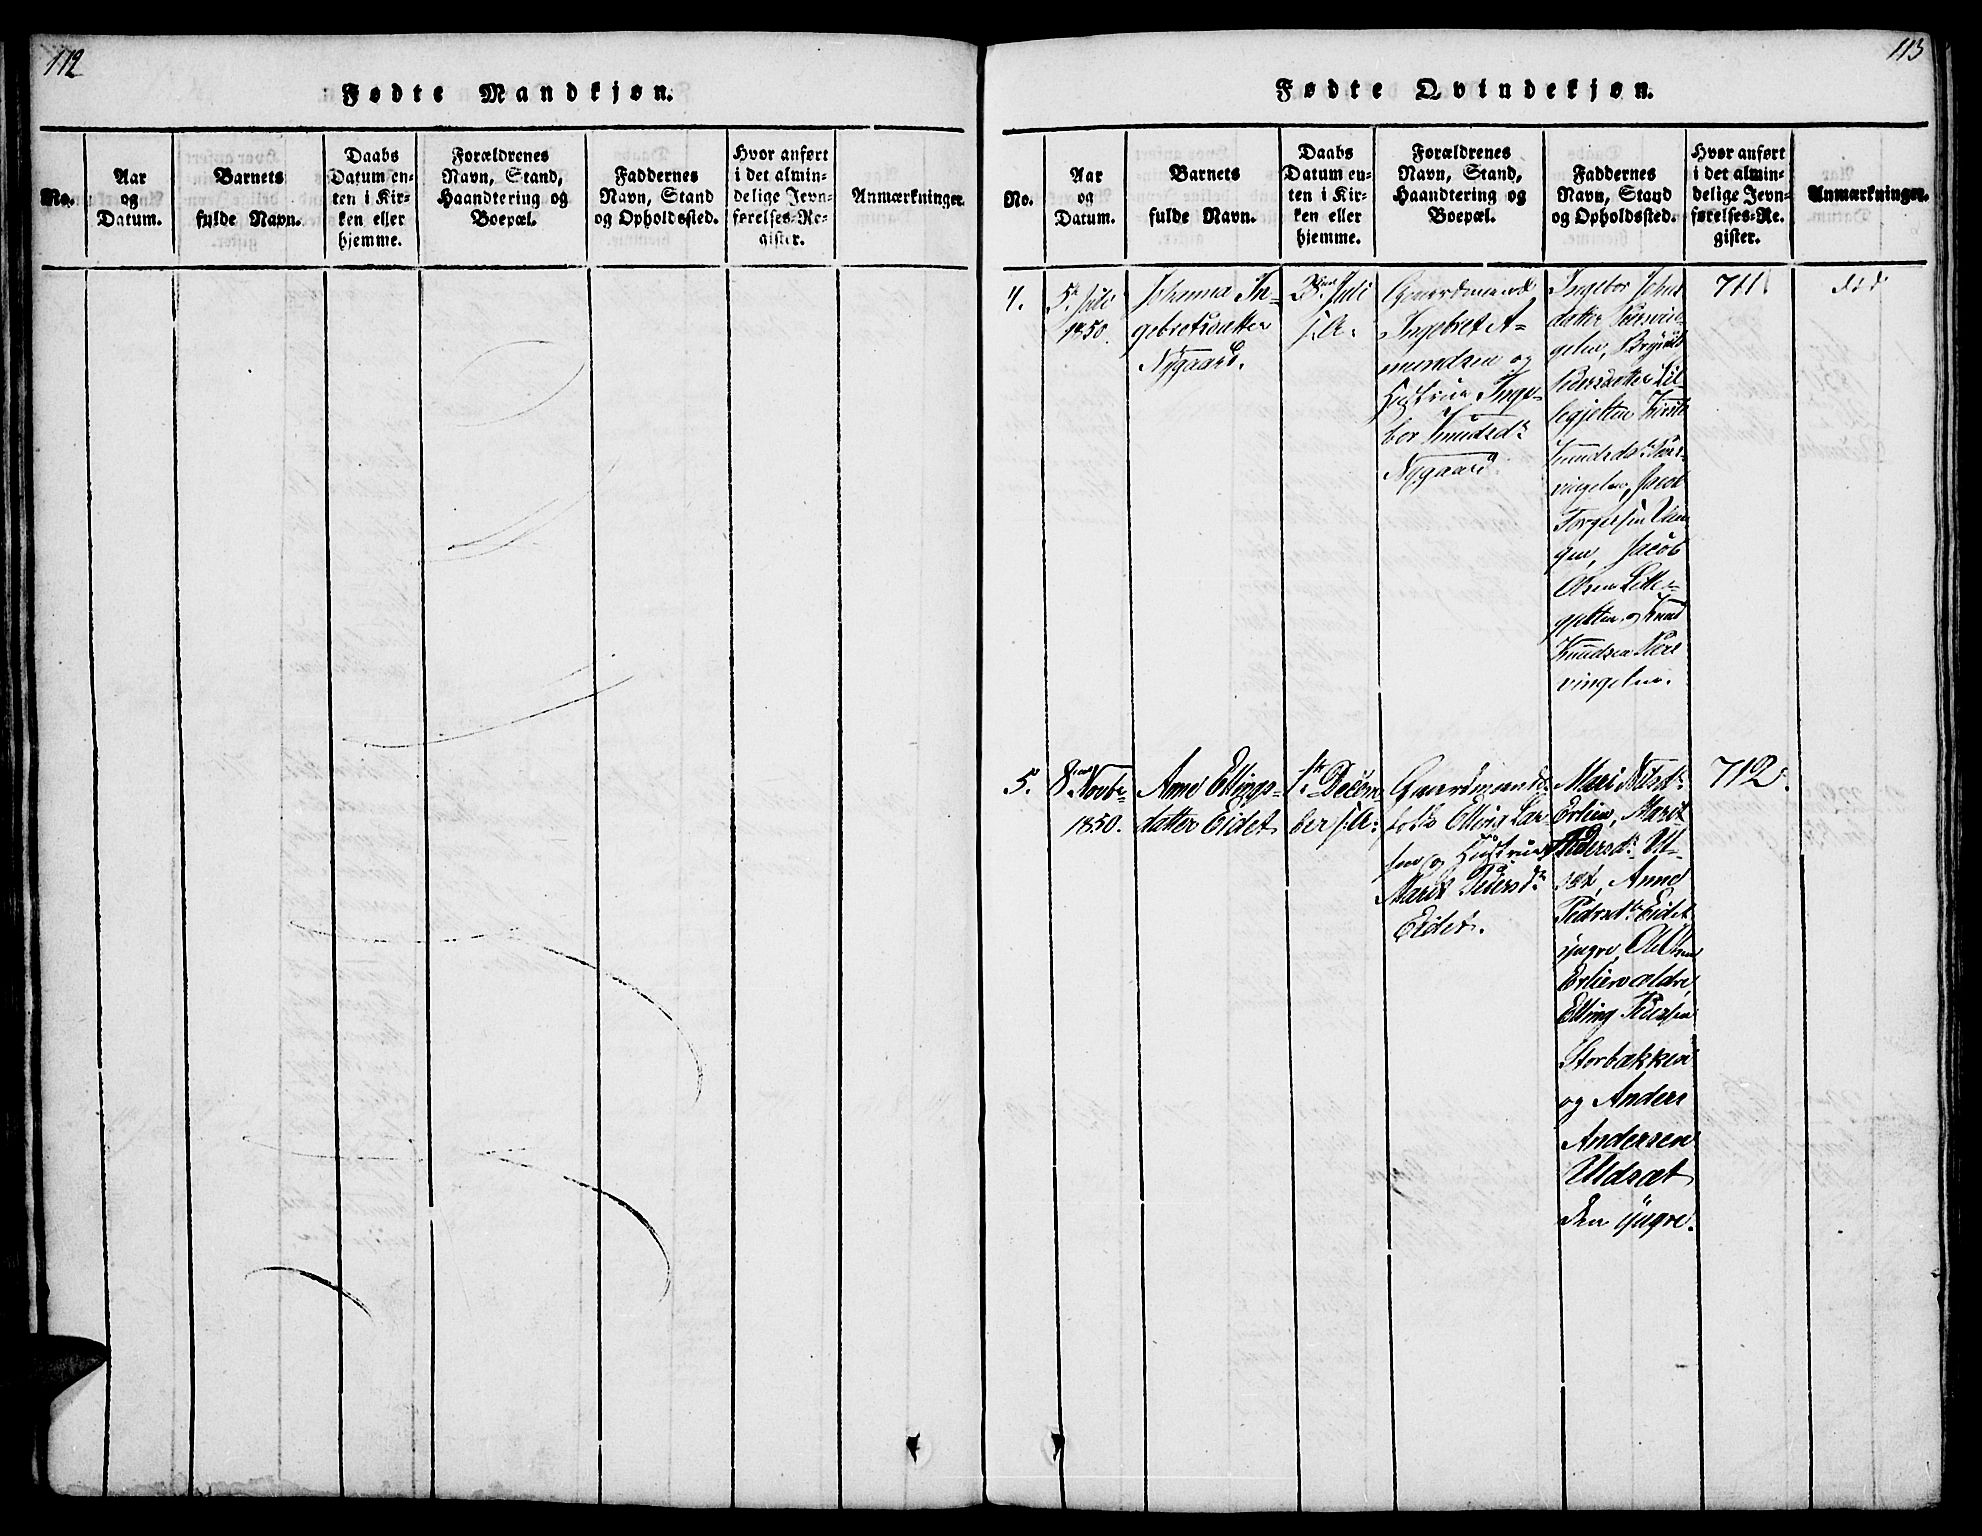 112
Fødte Mandkjøn.
No.
Aar
og
Datum.
Barnets
fulde Navn.
Daabs
Datum en-
ten i Kir-
ken eller
hjemme.
Forældrenes
Navn, Stand,
Haandtering og
Boepæl.
Faddernes
Navn, Stand
og Opholdssted.
Hvor anført
i det almin-
delige Jevn-
førelses-Re-
gister.
Anmærkninger.
113
Fødte Qvindekjøn.
No.
Aar
og
Datum.
Barnets
fulde Navn.
Daabs
Datum en-
ten i Kir-
ken eller
hjemme.
Forældrenes
Navn, Stand,
Haandtering og
Boepæl.
Faddernes
Navn, Stand
og Opholdssted.
Hvor anført
i det almin-
delige Jevn-
førelses-Re-
gister.
Anmærkninger.
4.
5te Juli
1850.
Johanna In-
gebretsdatter
Nygaard.
Juli
s. A.
Gaardmand
Ingebret A-
mundsen og
Hustrue Inge-
bor Knudsdr
Nygaard.
Ingebor Johns
datter
gelen,
Pedersdatter Lil-
Knudsdr Nør-
vingelen, Jacob
Torgersen
gen, Jacob
Olsen Lille-
gjelten og Knud
Knudsen Nør
vingelen.
711
5.
8de Novbr
1850.
Anne Ellings-
datter Eidet
1ste Decem-
ber s. A.
Gaardmands-
folk Elling Lar-
sen og Hustrue
Marit Pedersdr
Eidet.
Mari Nilsdr
Erlien, Marit
Pedersdr Ud-
sæt, Anne
Pedersdr Eidet
yngre, Ole Olsen
Erlien ældre,
Elling Pedersen
Storbækken
og Anders
Andersen
Udsæt
den yngre.
712.